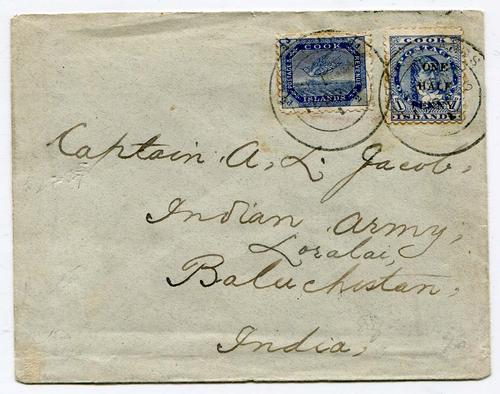 COOK
POSTAGE
REVENUE
ISLANDS
COOK
POSTAGE
ONE
HALF
PENNY
ISLANDS
Captain A. L. Jacob,
Indian Army,
Loralai,
Baluchistan,
India,